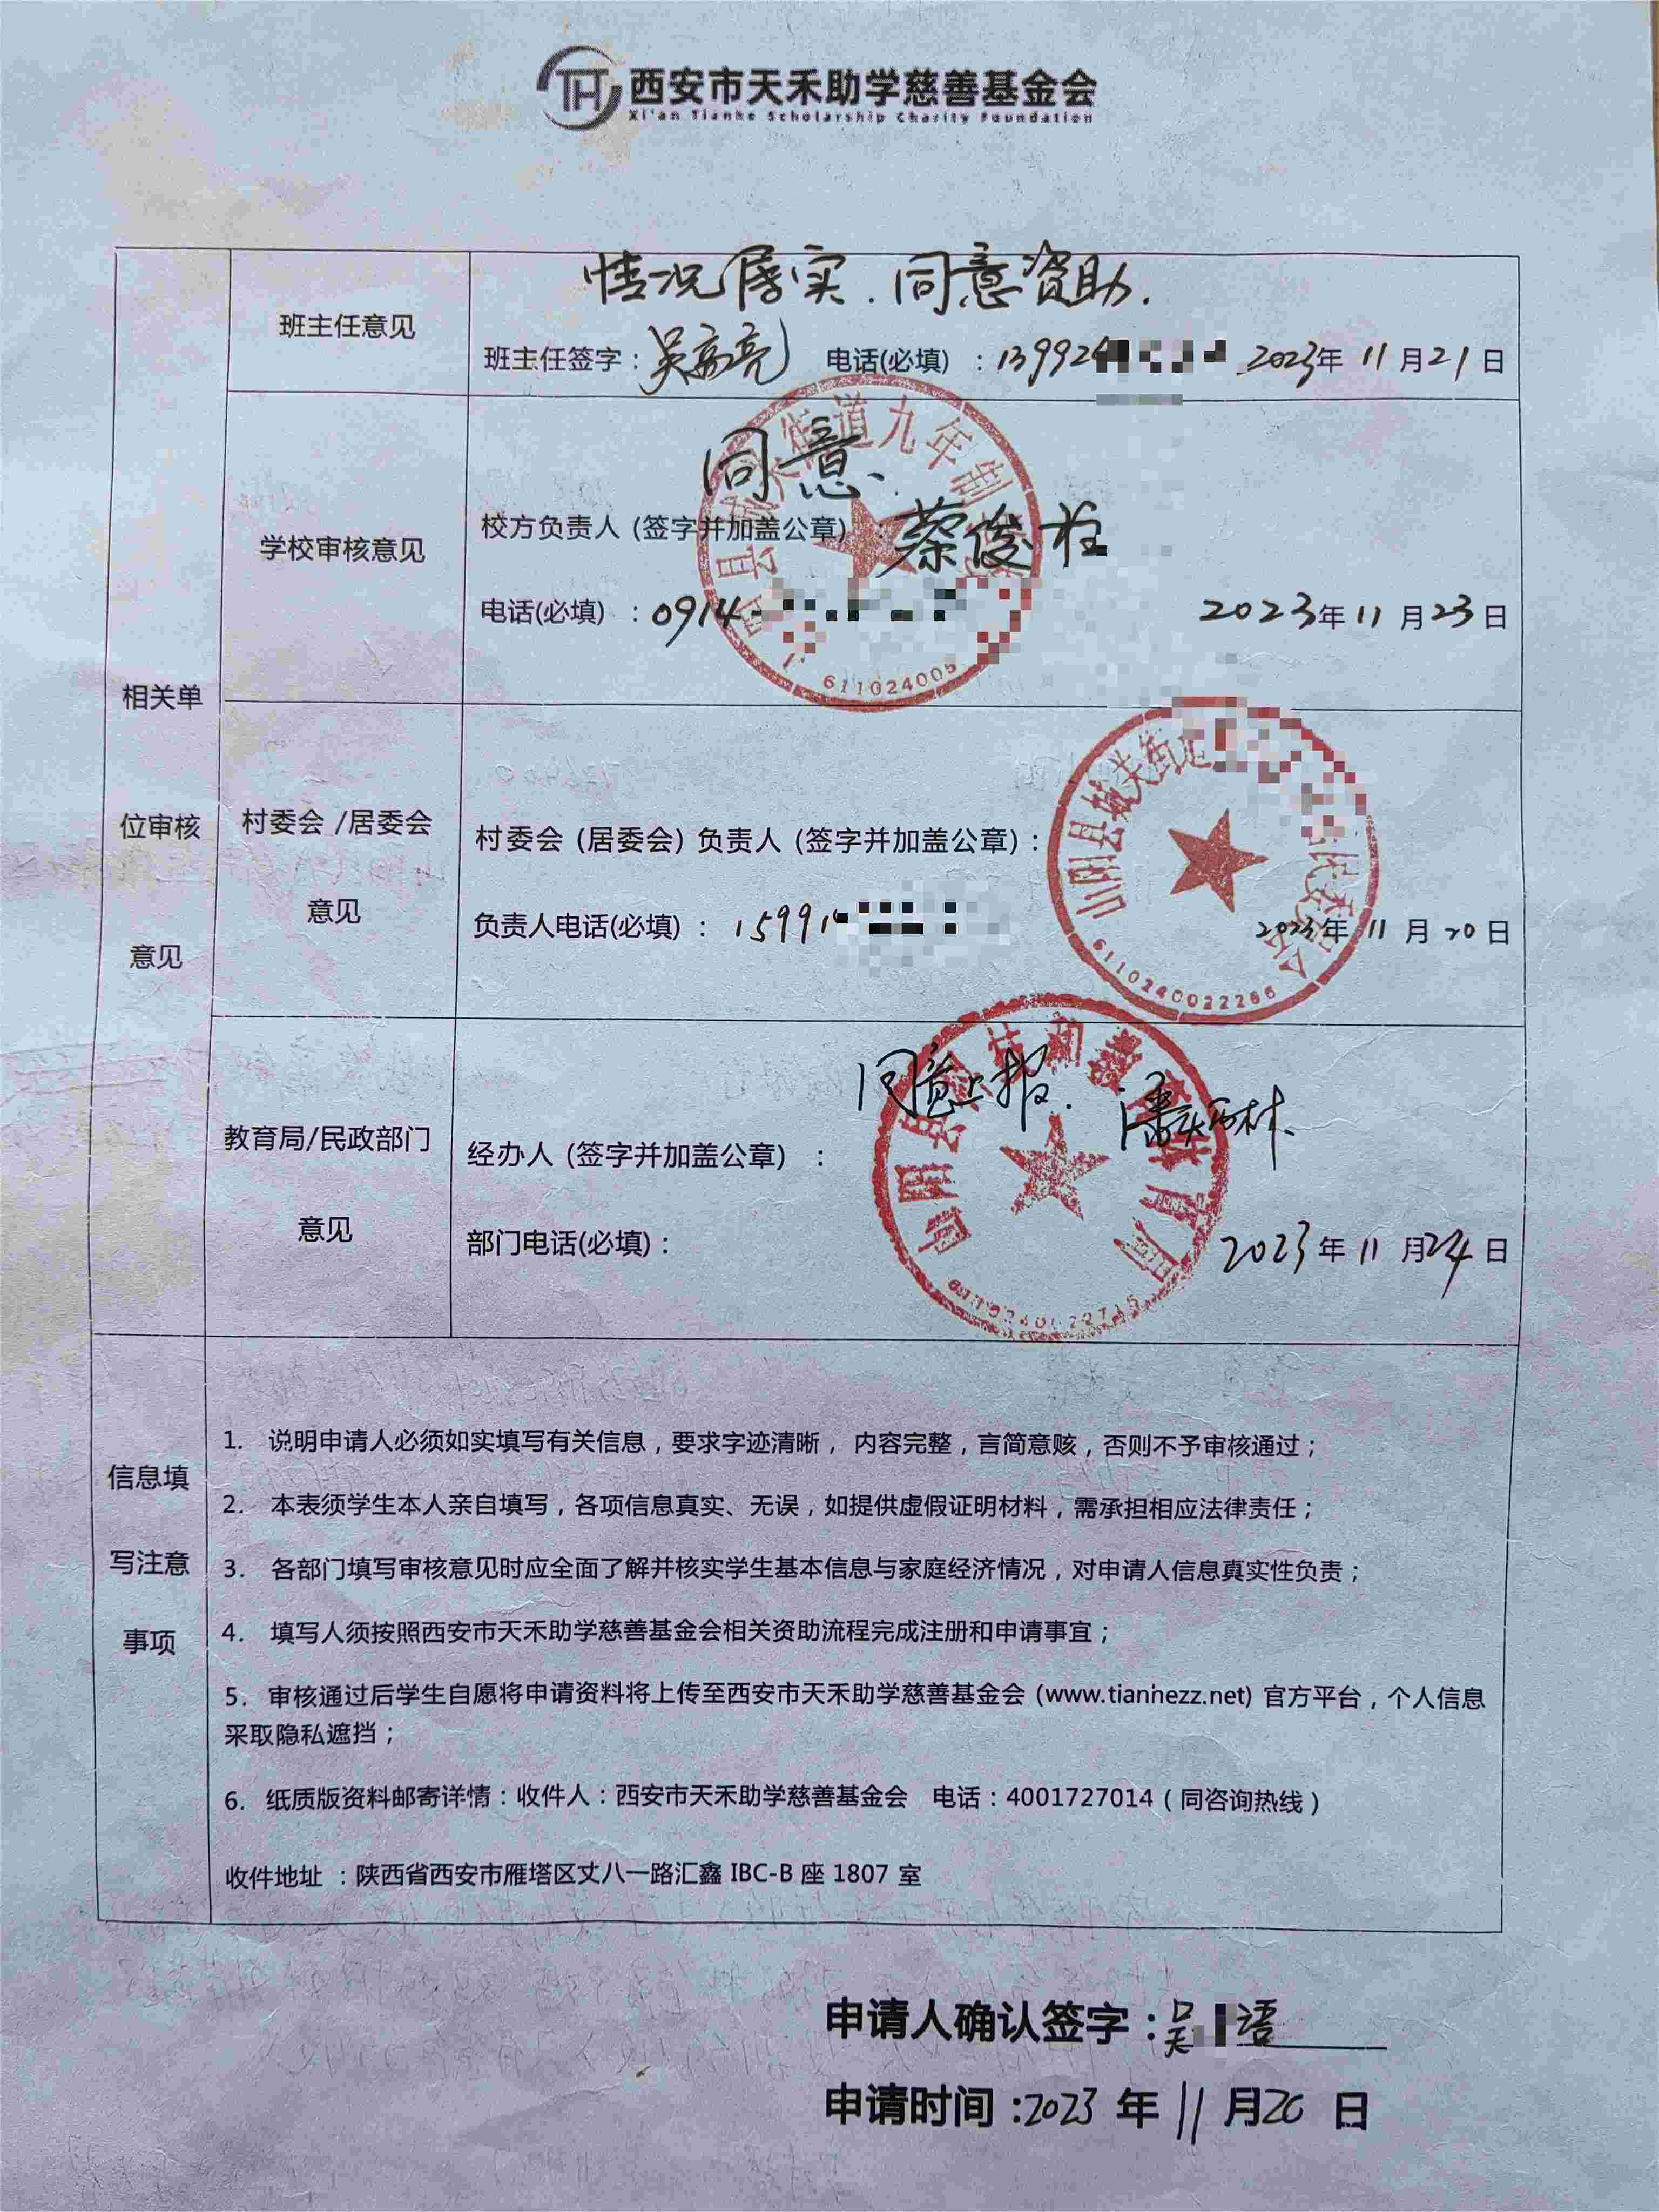 西安市天禾助学慈善基金会
Xi'an Tianhe Scholarship Charity Foundation
相关单
位审核
意见
班主任意见
情况属实.同意资助.
班主任签字：吴高亮 电话(必填) ：139924 2023年 11 月 21 日
学校审核意见
街道九年制
同意、
校方负责人 (签字并加盖公章) ：蔡俊柱
电话(必填) ：0914- 2023年 11 月 23 日
611024005
村委会 /居委会
意见
山阳县城关街道 居民委员会
村委会 (居委会) 负责人 (签字并加盖公章)：
负责人电话(必填) ：15991 2023年 11 月 20 日
6110240022286
教育局/民政部门
意见
同意上报.
经办人 (签字并加盖公章) ：
部门电话(必填)： 2023 年 11 月 24 日
信息填
写注意
事项
1. 说明申请人必须如实填写有关信息，要求字迹清晰， 内容完整，言简意赅，否则不予审核通过；
2. 本表须学生本人亲自填写，各项信息真实、无误，如提供虚假证明材料，需承担相应法律责任；
3. 各部门填写审核意见时应全面了解并核实学生基本信息与家庭经济情况，对申请人信息真实性负责；
4. 填写人须按照西安市天禾助学慈善基金会相关资助流程完成注册和申请事宜；
5. 审核通过后学生自愿将申请资料将上传至西安市天禾助学慈善基金会 (www.tianhezz.net) 官方平台，个人信息
采取隐私遮挡；
6. 纸质版资料邮寄详情：收件人：西安市天禾助学慈善基金会 电话：4001727014（同咨询热线）
收件地址 ：陕西省西安市雁塔区丈八一路汇鑫 IBC-B 座 1807 室
申请人确认签字：吴 语
申请时间：2023 年 11 月 20 日